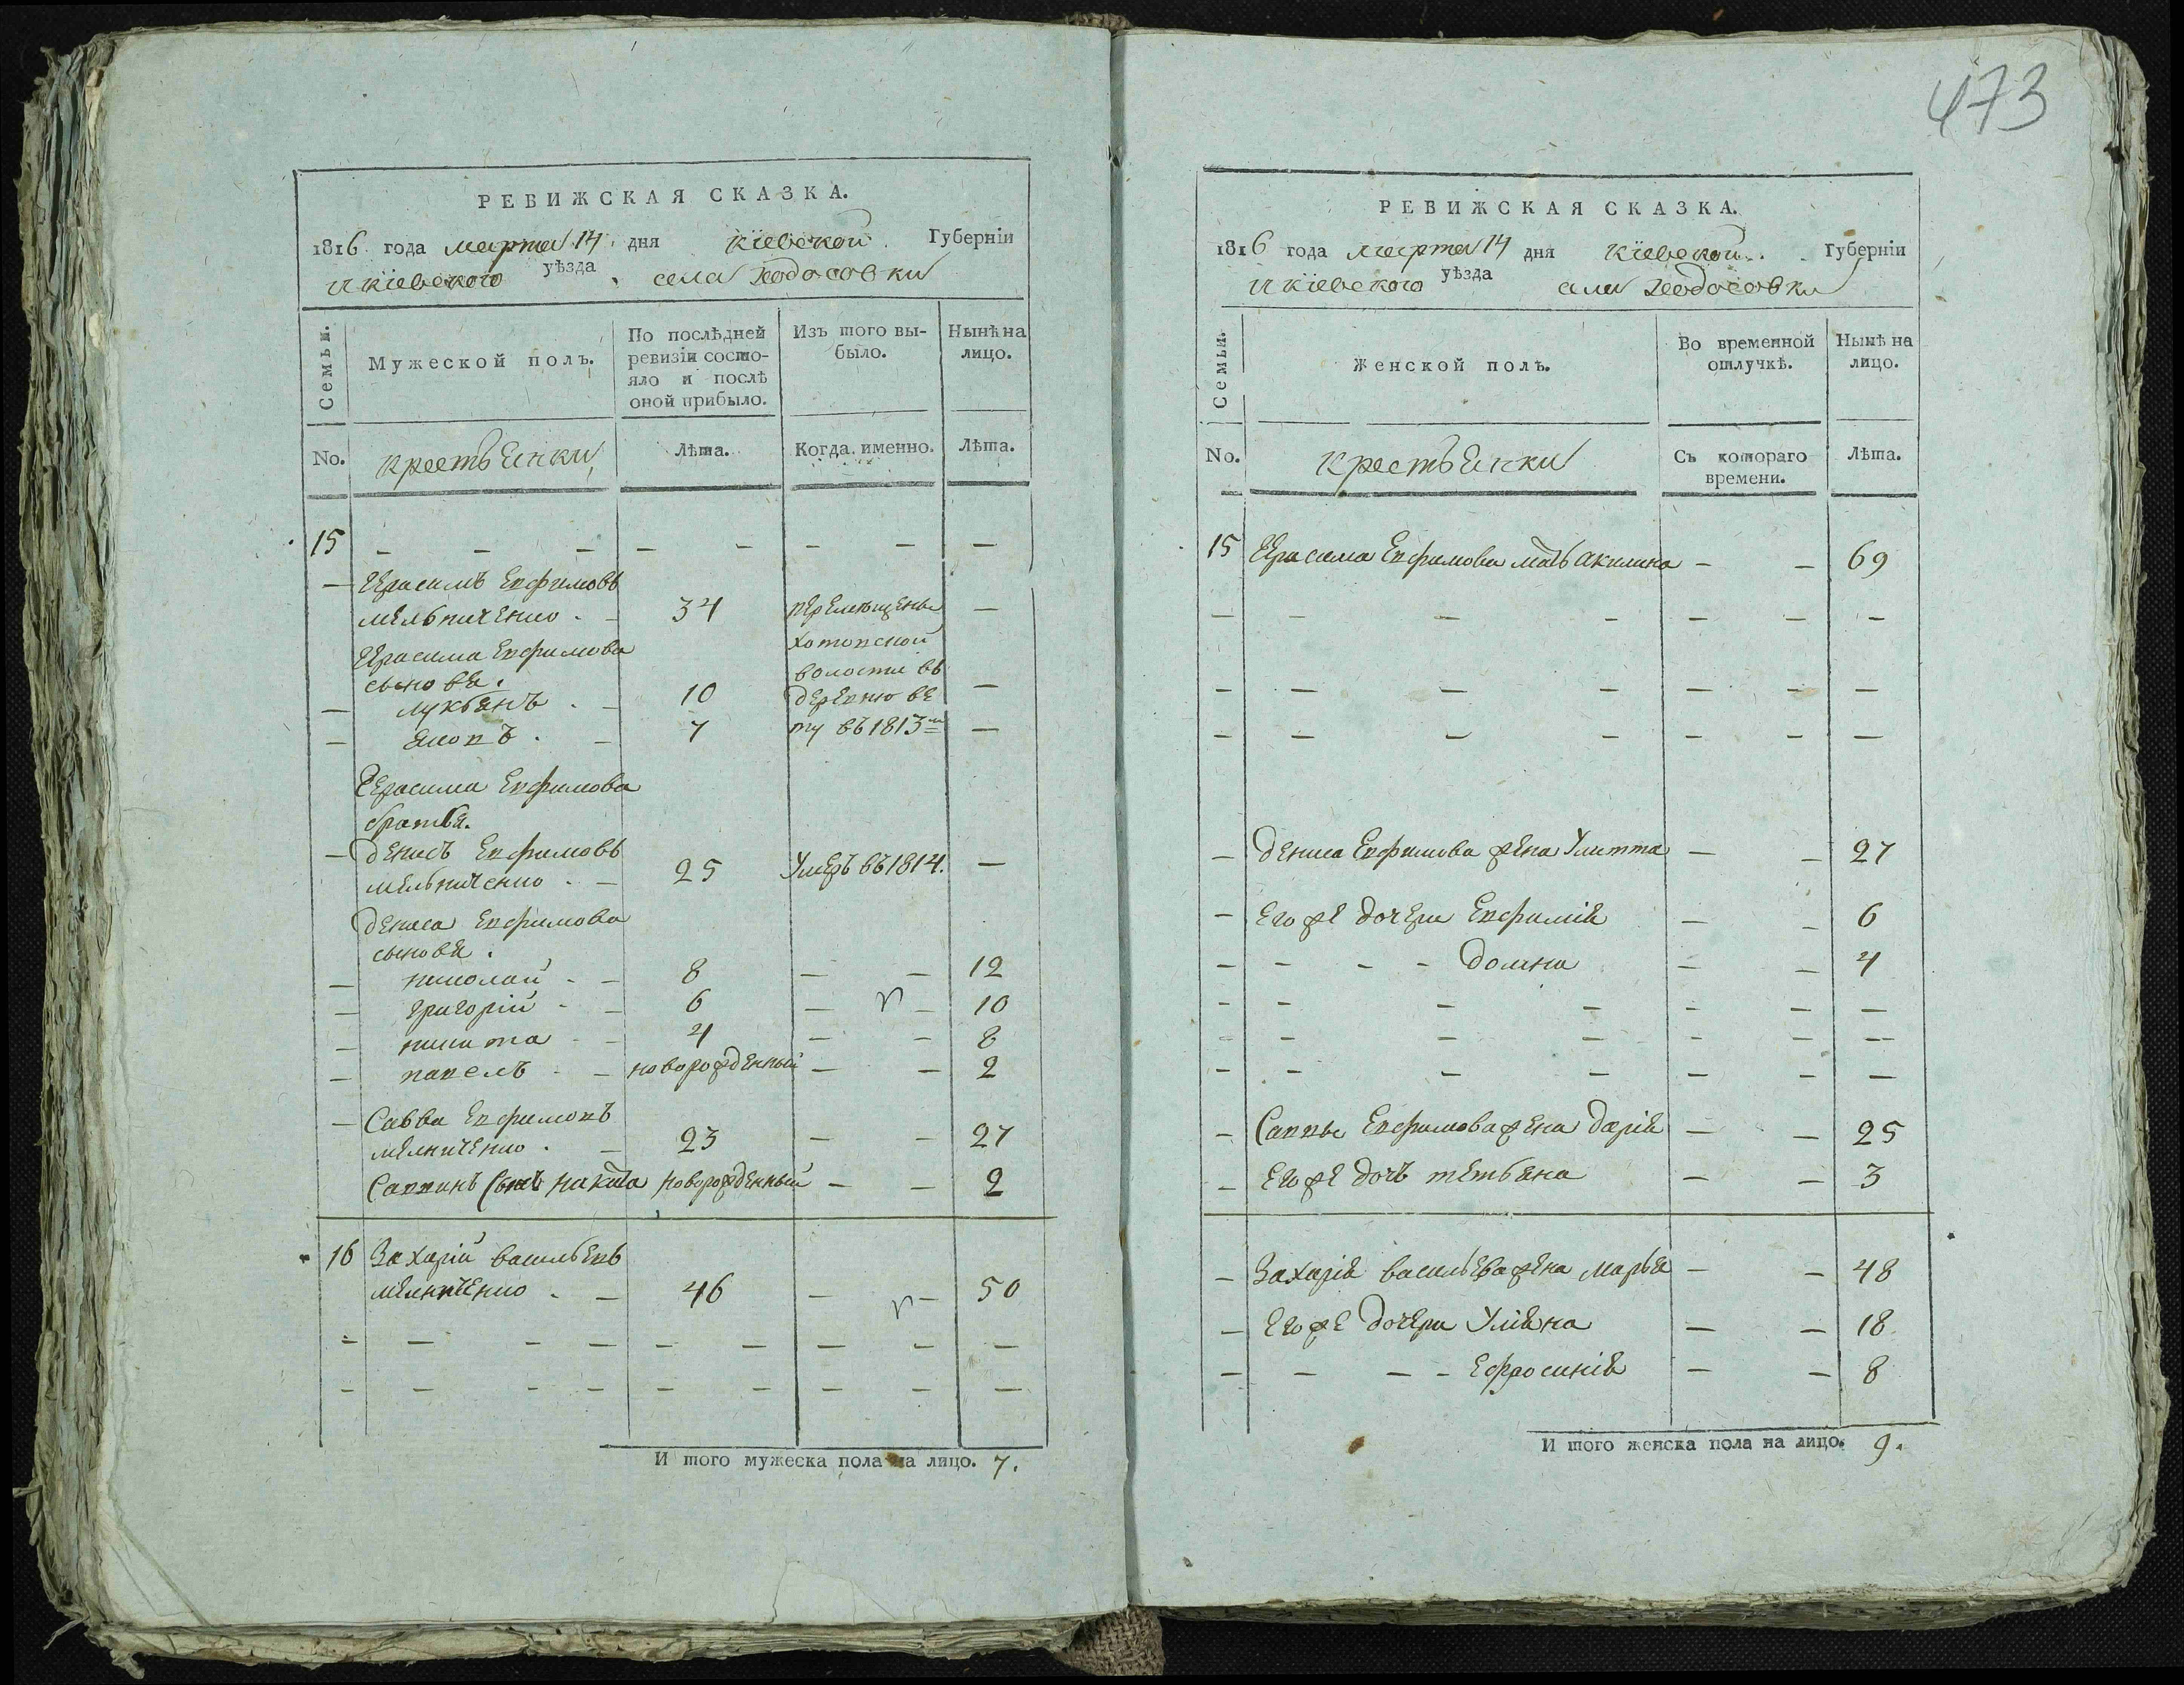 473
РЕВИЖСКАЯ СКАЗКА.
1816 года марта 14 дня Кіевской Губерніи
и Кіевского уѣзда, села Ходосовки
Семьи. Мужеской полъ. По послѣдней ревизіи состояло и послѣ оной прибыло. Изъ того выбыло. Нынѣ на лицо.
No. Лѣта. Когда именно. Лѣта.
15 — — — — — — — —
— Герасимъ Евфимовъ
мельниченко - 34 перемещены —
Герасима Евфимова Хотовской
сыновя. волости въ
— лукьянъ - 10 деревню ве —
— - 7 ту въ 1813м —
Герасима Евфимова
братья.
— денисъ Евфимовъ
мельниченко - — 25 Умеръ въ 1814. —
дениса Евфимова
сыновя.
— николай - — 8 — — 12
— григорій - — 6 — — 10
— никита - — 4 — — 8
— павелъ - — новорожденный — — 2
— Савва Евфимовъ
мелниченко - — 23 — — 27
Саввинъ сынъ никита новорожденный — — 2
16 Захарій васильевъ
мелниченко - — 46 — — 50
— — — — — — — — —
— — — — — — — — —
И того мужеска пола на лицо. 7.
РЕВИЖСКАЯ СКАЗКА.
1816 года марта 14 дня Кіевской Губерніи
и Кіевского уѣзда села Ходосовки
Семьи. Женской полъ. Во временной отлучкѣ. Нынѣ на лицо.
No. крестьянки Съ котораго времени. Лѣта.
15 Герасима Евфимова мать акилина — — 69
— — — — — — —
— — — — — — —
— — — — — — —
— дениса Евфимова жена Улитта — — 27
— Его же дочери Евфимія — — 6
— - - - домна — — 4
— — — — — — —
— — — — — — —
— — — — — — —
— Саввы Евфимова жена дарія — — 25
— Его же дочь тетьяна — — 3
— Захарія васильева жена марья — — 48
— Его же дочери Уліяна — — 18
— — — - Ефросинія — — 8
И того женска пола на лицо. 9.